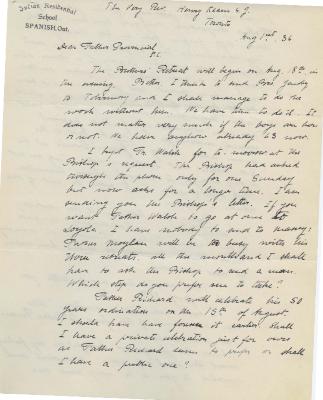 Indian Residential
School
SPANISH, Ont.
The Very Rev. Henry Keane S.J.
Toronto
Aug 1st 36
Dear Father Provincial,
P.C.
The Brothers' Retreat will begin on Aug. 18th in
the evening. Better I think to send Bro.
to and I shall manage to do the
work without him. We have time to do it. It
does not matter very much if the boys are here
or not. We have anyhow already 63 now.
I kept Fr. Walsh for to-morrow at the
Bishop's request. The Bishop had asked
through the phone only for one Sunday
but now asks for a longer time. I am
sending you the Bishop's letter. If you
want Father Walsh to go at once to
Loyola I have nobody to send to
Father will be busy with the
three retreats all the month and I shall
have to ask the Bishop to send a man.
Which step do you prefer me to take?
Father Richard will celebrate his 50
years ordination on the 15th of August.
I should have it earlier. Shall
I have a private celebration just for ours
as Father Richard seems to prefer or shall
I have a public one?